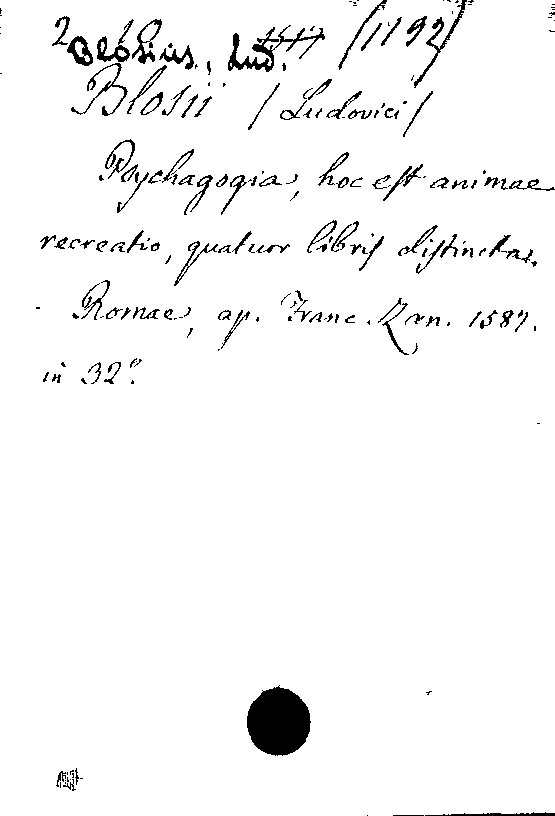 (1192)
Blosius, Lud.
Blosii / Ludovici /
Psychagogia, hoc est animae
recreatio, quatuor libris distincta.
Romae, ap. Franc. Zan. 1587.
in 32°.